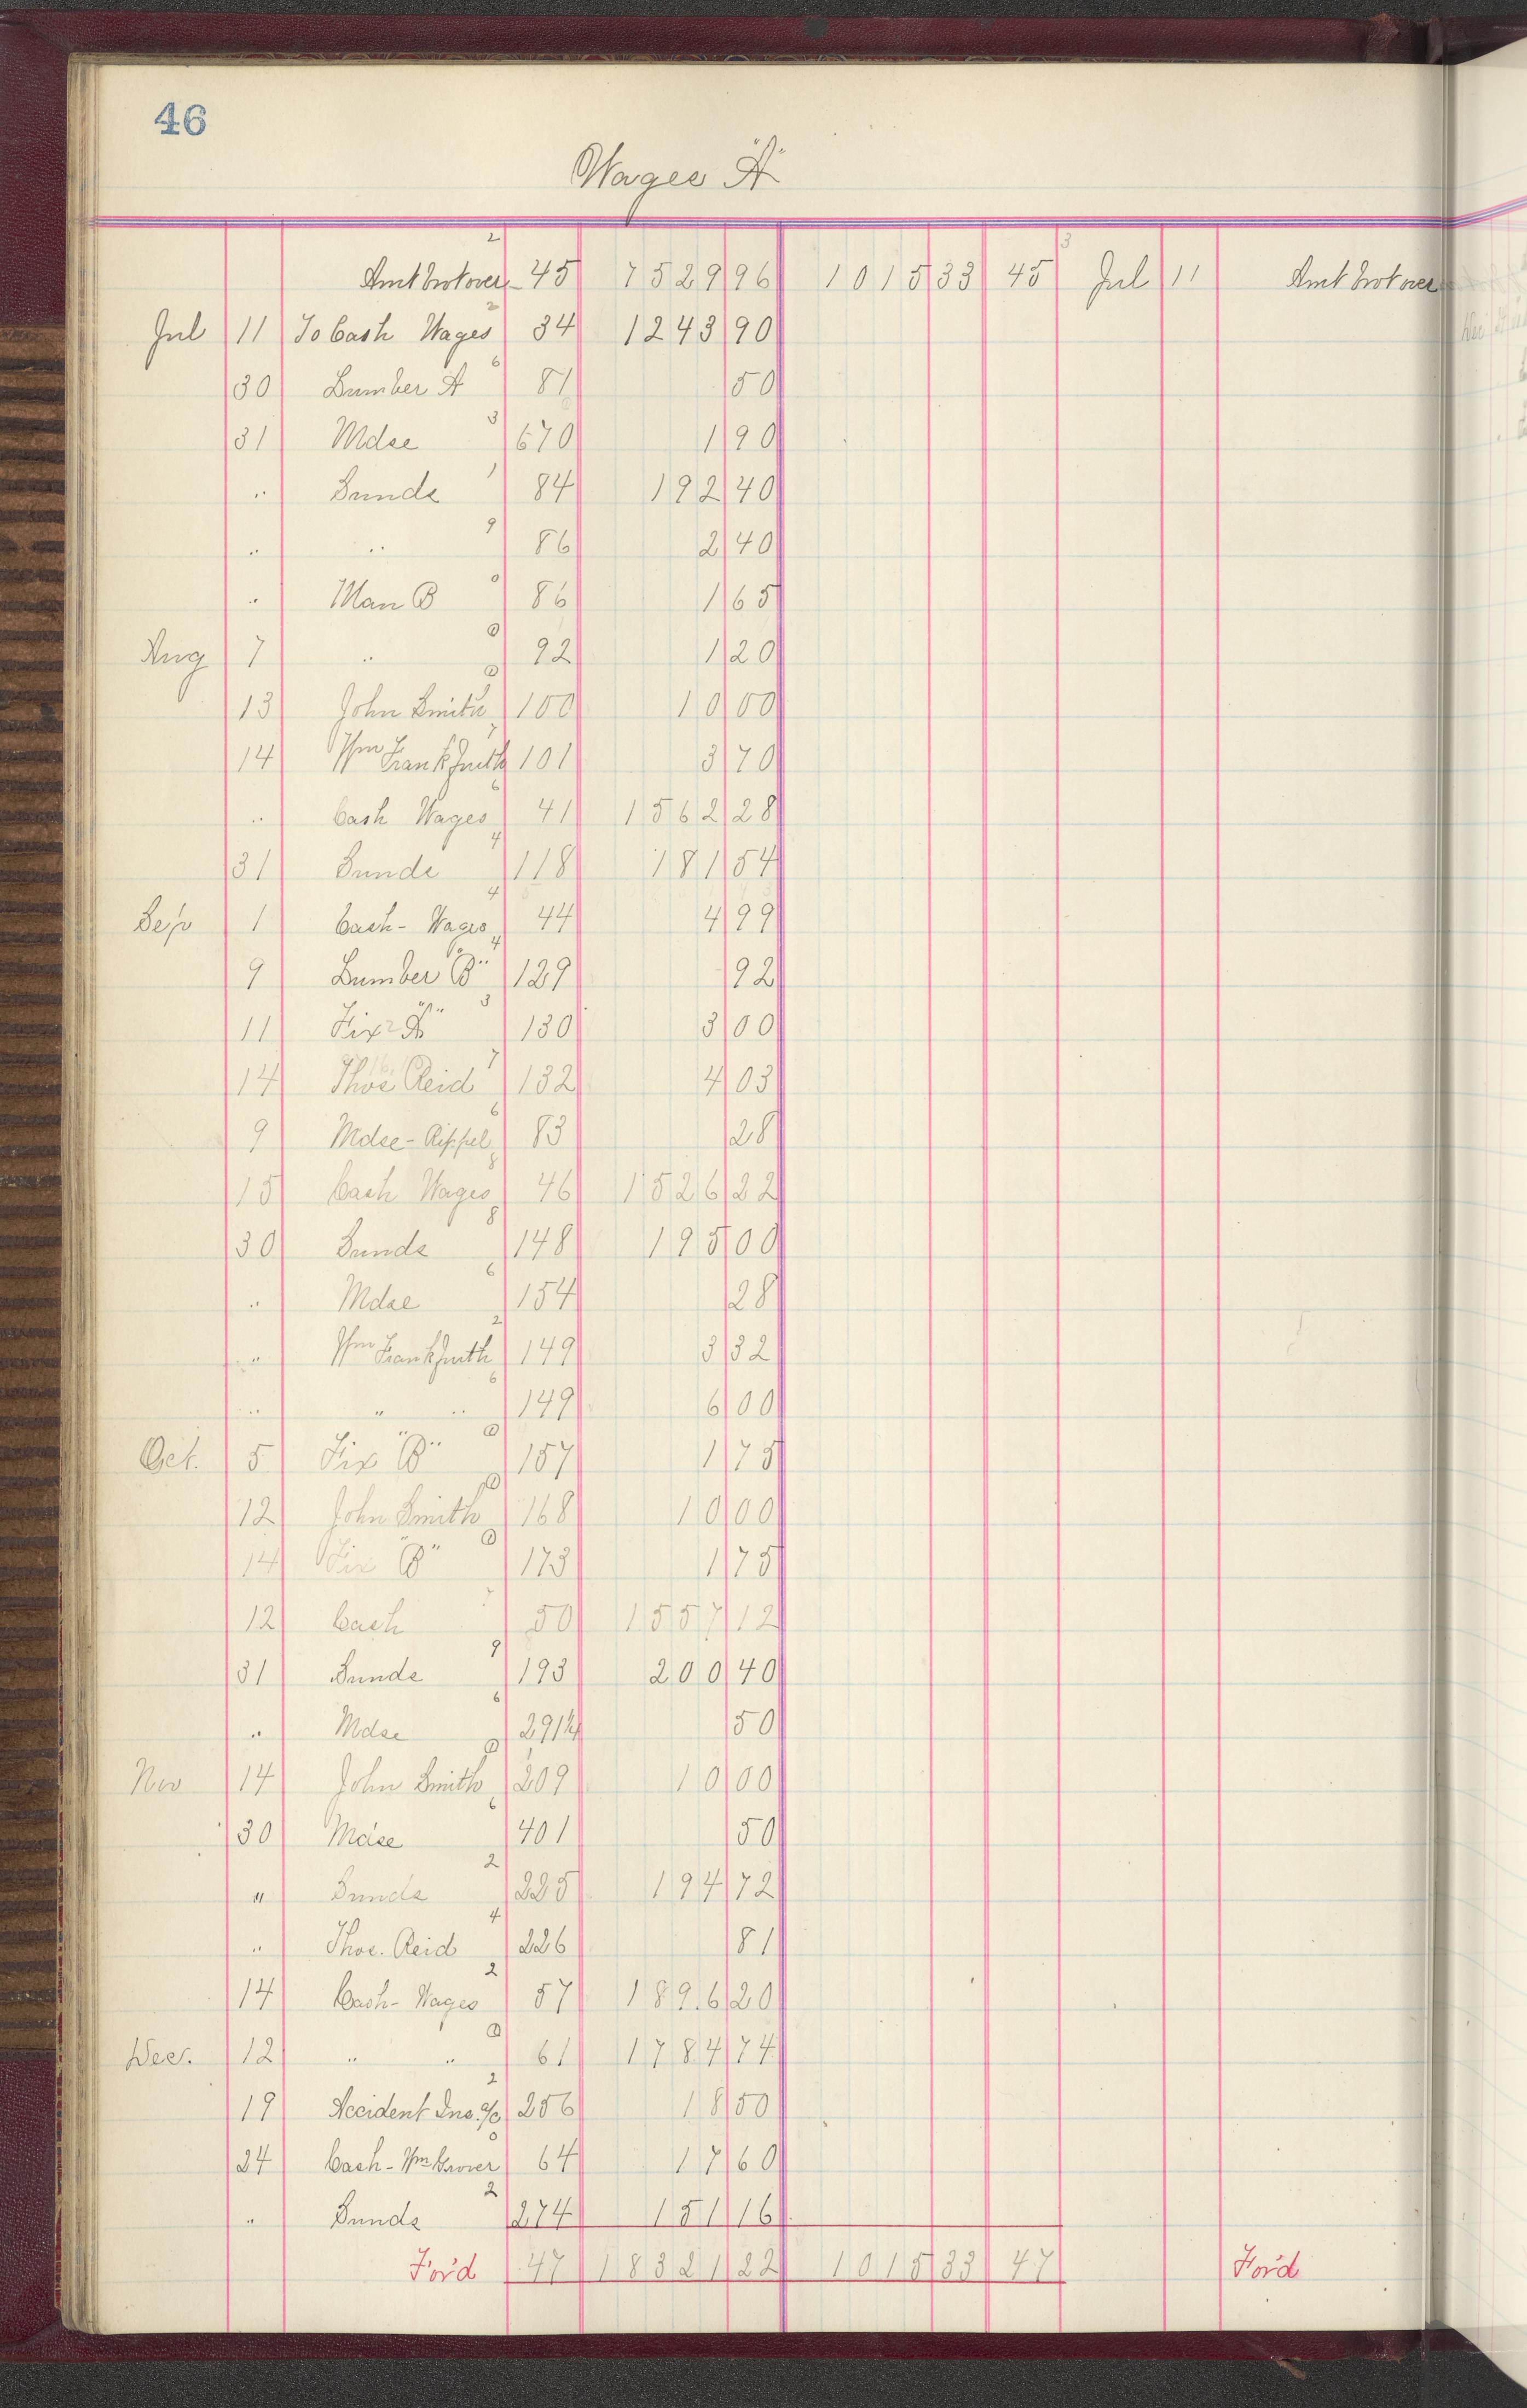 46
Wages "A"
Amt brot over 45 7529 96 1015 33 45 Jul 11 Amt brot over
Jul 11 To Cash Wages 34 1243 90
30 Lumber A 81 50
31 Mdse 670 1 90
" Sunds 84 192 40
" " 86 2 40
" Man B 86 1 65
Aug 7 " 92 1 20
13 John Smith 100 10 00
14 Wm Frankfurth 101 3 70
" Cash Wages 41 1562 28
31 Sunds 118 181 54
Sep 1 Cash - Wages 44 4 99
9 Lumber "B" 129 92
11 Fix "A" 130 3 00
14 Thos Reid 132 4 03
9 Mdse - Rippel 83 28
15 Cash Wages 46 1526 22
30 Sunds 148 195 00
" Mdse 154 28
" Wm Frankfurth 149 3 32
" " " 149 6 00
Oct. 5 Fix "B" 157 1 75
12 John Smith 168 10 00
14 Fix "B" 173 1 75
12 Cash 50 1557 12
31 Sunds 193 200 40
" Mdse 50
Nov 14 John Smith 209 10 00
30 Mdse 401 50
" Sunds 225 194 72
" Thos. Reid 226 81
14 Cash - Wages 57 1896 20
Dec. 12 " " 61 1784 74
19 Accident Ins. a/c 256 18 50
24 Cash - Wm Grover 64 17 60
" Sunds 274 151 16
For'd 47 18321 22 1015 33 47 For'd